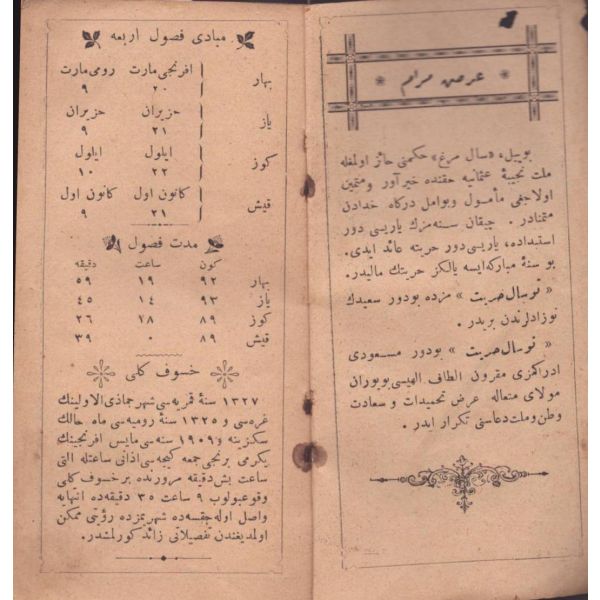 عرض مرام
بوییل، «سال مرغ» حکمنی حائز اولمغله
ملت نجیبهٔ عثمانیه حقنده خیرآور ومتیمن
اولاجغی مأمول وبوامل درکاه خدادن
متمنادر. چیقان سنه‌مزك یاریسی دور
استبداده، یاریسی دور حریته عائد ایدی.
بو سنهٔ مبارکه‌ایسه یالکز حریتك مالیدر.
« نوسال حریت » مزده بودور سعیدك
نوزادلرندن بریدر.
« نوسال حریت » بودور مسعودی
ادراکمزی مقرون الطاف الهیسی بویوران
مولای متعاله عرض تحمیدات و سعادت
وطن وملت دعاسنی تکرار ایدر.
مبادی فصول اربعه
بهار افرنجی مارت ٢٠ رومی مارت ٩
یاز حزیران ٢١ حزیران ٩
کوز ایلول ٢٢ ایلول ١٠
قیش کانون اول ٢١ کانون اول ٩
مدت فصول
کون ساعت دقیقه
بهار ٩٢ ١٩ ٥٩
یاز ٩٣ ١٤ ٤٥
کوز ٨٩ ١٨ ٢٦
قیش ٨٩ ٠ ٣٩
خسوف کلی
١٣٢٧ سنهٔ قمریه‌سی شهر جماذی الاولینك
غره‌سی و ١٣٢٥ سنهٔ رومیه‌سی ماه حالك
سکزینه و ١٩٠٩ سنه‌سی مایس افرنجینك
یکرمی برنجی جمعه کیجه‌سی اذانی ساعتله التی
ساعت بش دقیقه مرورنده بر خسوف کلی
وقوعبولوب ٩ ساعت ٣٥ دقیقه‌ده انتهایه
واصل اوله جقسه‌ده شهریمزده رؤیتی ممکن
اولمدیغندن تفصیلاتی زائد کورلمشدر.